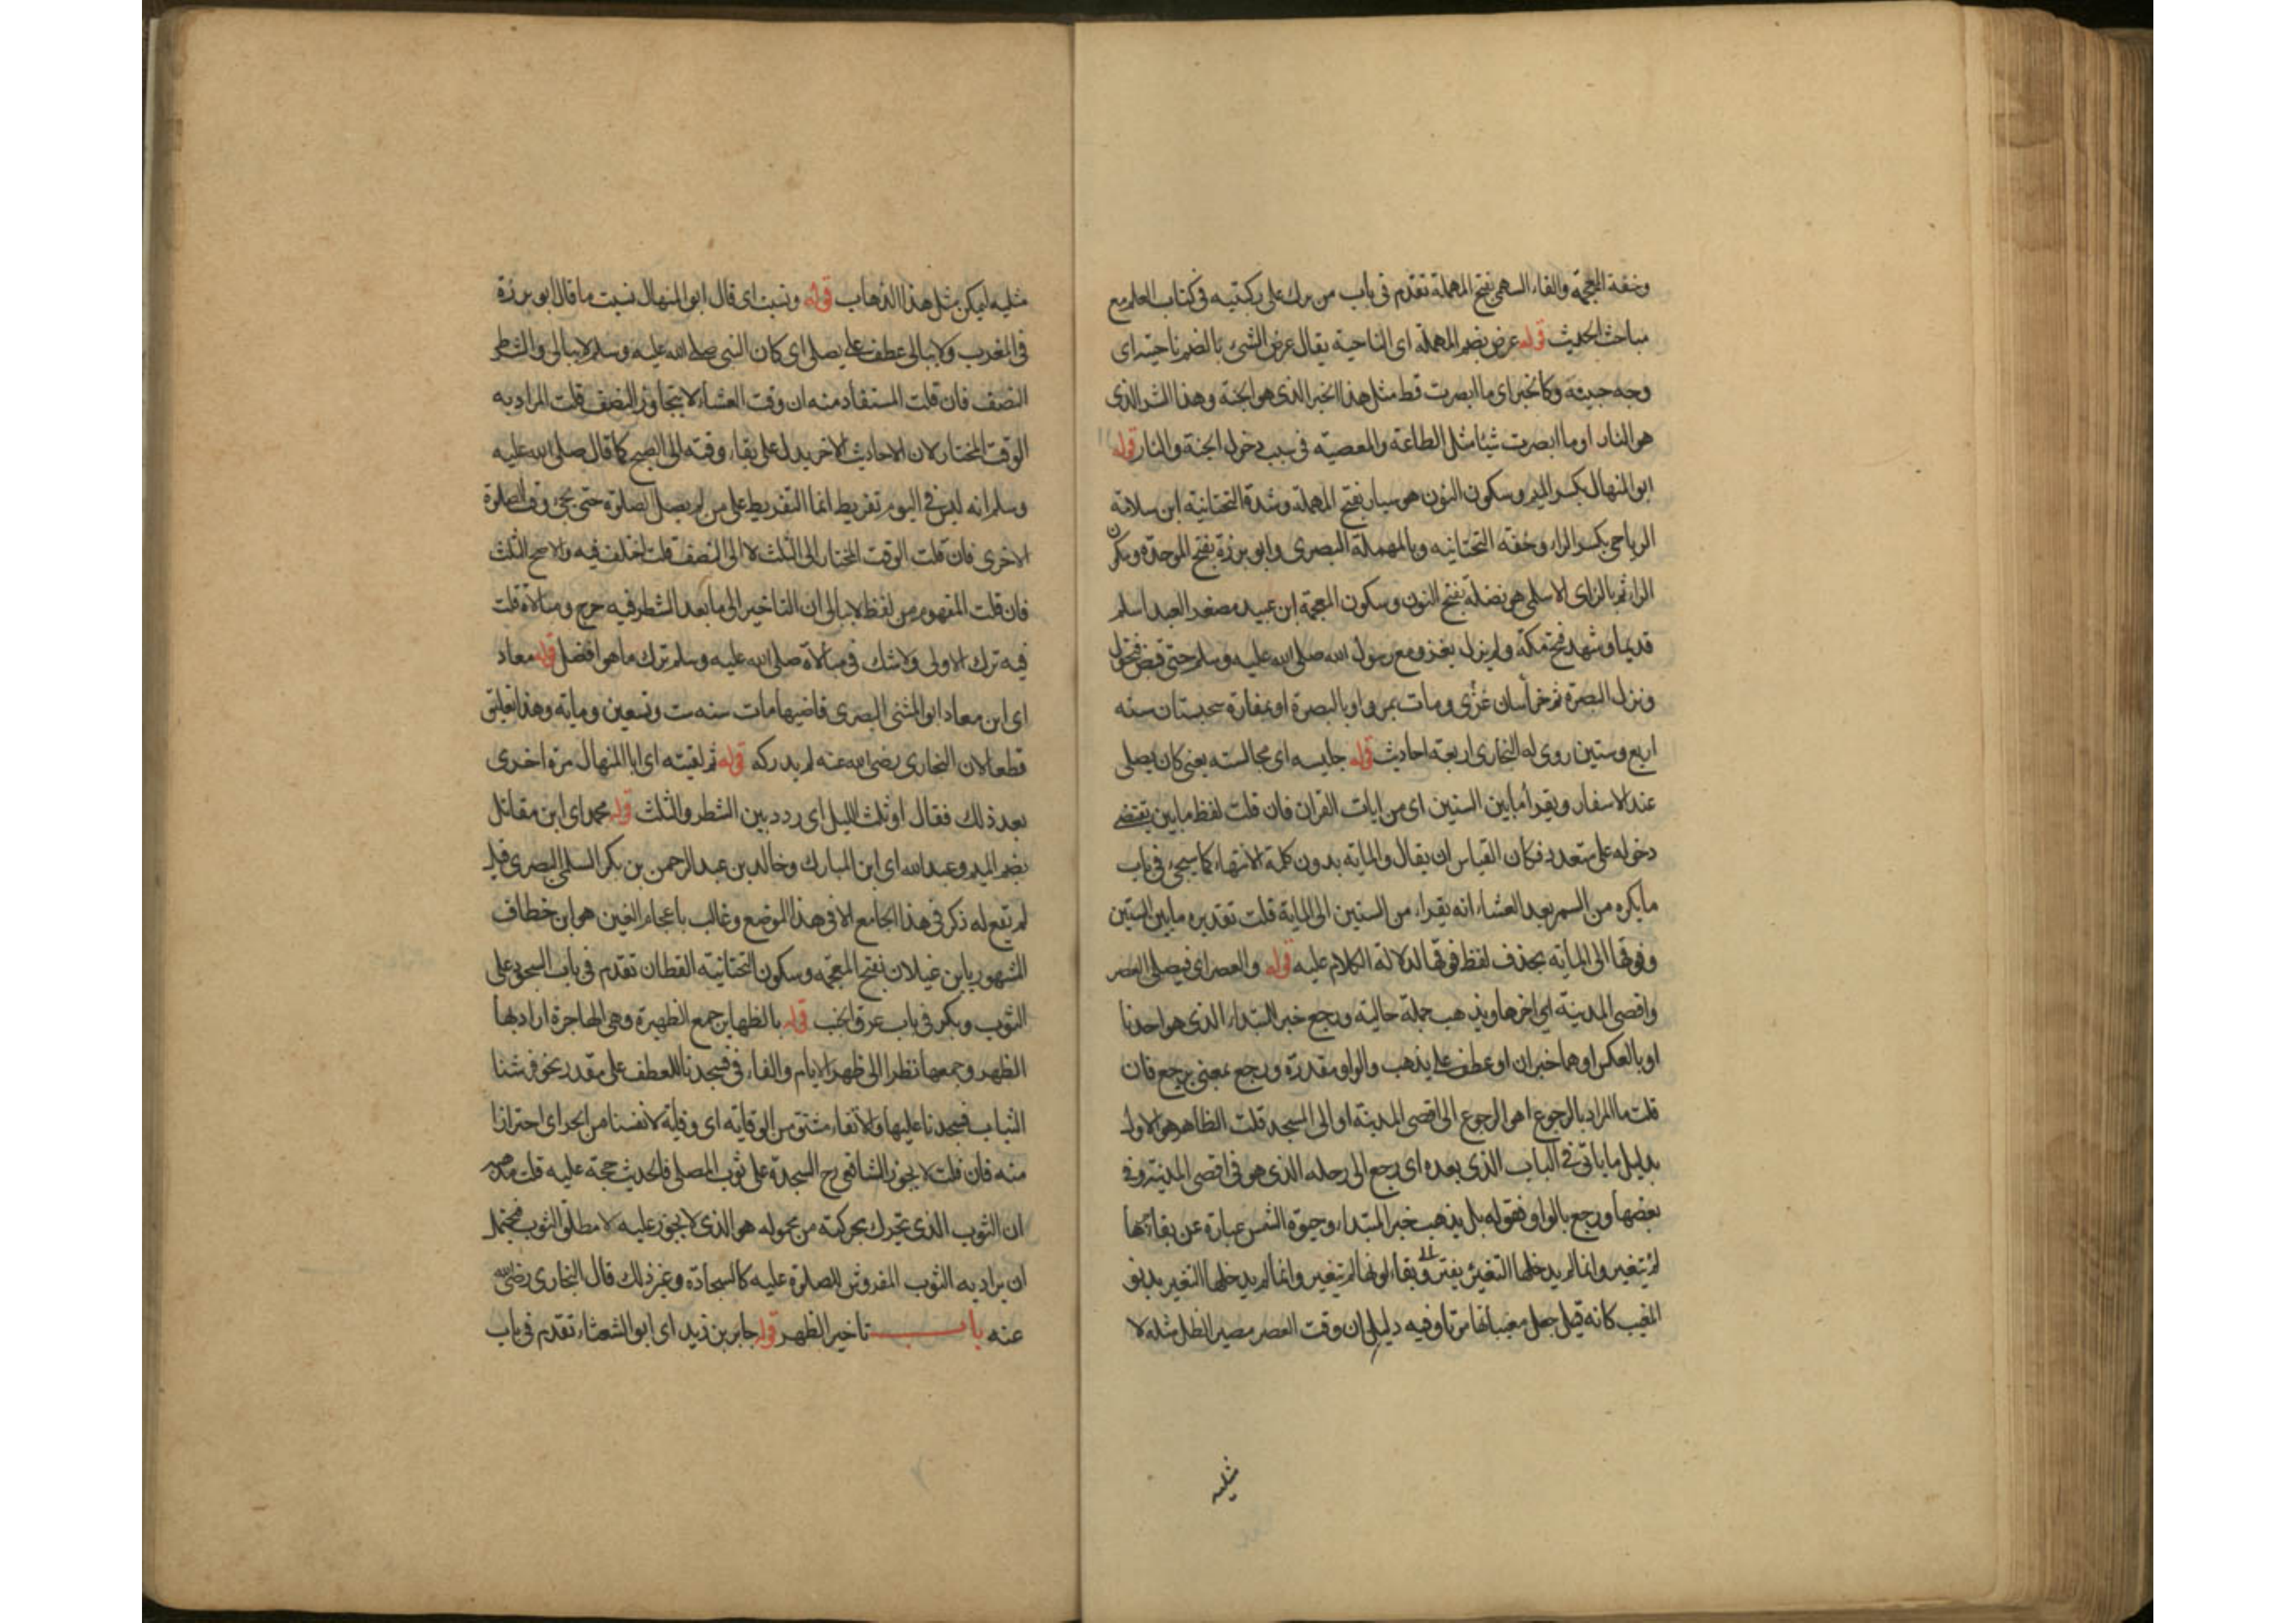 وخفة المعجمة والفاء السهمي بفتح المهملة تقدم في باب من برك على ركبتيه في كتاب العلم مع
مباحث الحديث قوله عرض بضم المهملة اى الناحية يقال عرض الشئ بالضم ناحيته اى
وجه جيئته وكالخبر اى ما ابصرت قط مثل هذا الخير الذى هو الجنة وهذا الشر الذى
هو النار او ما ابصرت شيئا مثل الطاعة والمعصية في سبب دخول الجنة والنار قوله
ابو المنهال بكسر الميم وسكون النون هو سيار بفتح المهملة وشدة التحتانية ابن سلامة
الرياحي بكسر الراء وخفة التحتانيه وبالمهملة البصرى وابو برزة بفتح الموحدة وسكون
الراء ثم بالزاى الاسلمي هو نضلة بفتح النون وسكون المعجمة ابن عبيد مصغر العبد اسلم
قديما وشهد فتح مكة ولم يزل يغزو مع رسول الله صلى الله عليه وسلم حتى قبض فتحول
ونزل البصرة ثم خراسان غزى ومات بمرو او بالبصرة او بمفازة سجستان سنه
اربع وستين روى له البخارى اربعة احاديث قوله جليسه اى مجالسته يعنى كان يصلى
عند الاسفار ويقرأ ما بين الستين اى من ايات القران فان قلت لفظ ما بين يقتضى
دخوله على متعدد فكان القياس ان يقال والمايه بدون كلمة الانتهاء كما سيجئ في باب
ما يكره من السمر بعد العشاء انه يقراء من الستين الى الماية قلت تقديره ما بين الستين
وفوقها الى المايه بحذف لفظ فوقها لدلالة الكلام عليه قوله والعصر اى فيصلى العصر
واقصى المدينة اى اخرها ويذهب جملة حالية ورجع خبر المبتداء الذى هو احدنا
او بالعكس او هما خبران او عطف على يذهب والواو مقدرة ورجع بمعنى يرجع فان
قلت ما المراد بالرجوع اهو الرجوع الى اقصى المدينة او الى المسجد قلت الظاهر هو الاول
بدليل ما ياتى في الباب الذى بعده اى رجع الى رحله الذى هو في اقصى المدينة وفي
بعضها ورجع بالواو فقوله بل يذهب خبر المبتداء وحيوة الشمس عبارة عن بقائها
لم تتغير وانما لم يدخلها التغير وبقاء لونها لم تتغير وانما لم يدخلها التغير بدنو
المغيب كانه قيل جعل مغيبها موتا وفيه دليل ان وقت العصر مصير الظل مثله لا
مثليه
مثليه ليمكن مثل هذا الذهاب قوله ونسيت اى قال ابو المنهال نسيت ما قال ابو برزة
في المغرب ولا يبالى عطف على يصلى اى كان النبي صلى الله عليه وسلم لا يبالى والشطر
النصف فان قلت المستفاد منه ان وقت العشاء لا يتجاوز النصف قلت المراد به
الوقت المختار لان الاحاديث الاخر يدل على بقاء وقته الى الصبح كما قال صلى الله عليه
وسلم انه ليس في النوم تفريط انما التفريط على من لم يصل الصلوة حتى يجئ وقت الصلوة
الاخرى فان قلت الوقت المختار الى الثلث لا الى النصف قلت اختلف فيه والاصح الثلث
فان قلت المفهوم من لفظ لا يبالى ان التاخير الى ما بعد الشطر فيه حرج ومبالاة قلت
فيه ترك الاولى ولا شك في مبالاة صلى الله عليه وسلم ترك ما هو افضل قوله معاد
اى ابن معاد ابو المثنى البصرى قاضيها مات سنه ست وتسعين ومايه وهذا تعليق
قطعا لان البخارى رضى الله عنه لم يدركه قوله ثم لقيته اى ابا المنهال مرة اخرى
بعد ذلك فقال او ثلث الليل اى ردد بين الشطر والثلث قوله محمد اى ابن مقاتل
بضم الميم وعبد الله اى ابن المبارك وخالد بن عبد الرحمن بن بكر السلمي البصرى قيل
لم تقع له ذكر في هذا الجامع الا في هذا الموضع وغالب باعجام الغين هو ابن خطاف
المشهور بابن غيلان بفتح المعجمه وسكون التحتانية القطان تقدم في باب السجود على
الثوب وبكر في باب عرق الجنب قوله بالظهاير جمع الظهيرة وهي الهاجرة اراد بها
الظهر وجمعها نظرا الى ظهر الايام والفاء في فسجدنا للعطف على مقدر نحو فرشنا
الثياب فسجدنا عليها والاتقاء مشتق من الوقايه اى وقاية لانفسنا من الحر اى احترازا
منه فان قلت لا يجوز الشافعي رح السجدة على ثوب المصلى فالحديث حجة عليه قلت مذهبه
ان الثوب الذى يتحرك بحركته من محموله هو الذى لا يجوز عليه لا مطلق الثوب فيحتمل
ان يراد به الثوب المفروش للصلوة عليه كالسجادة وغير ذلك قال البخارى رضى الله
عنه باب تاخير الظهر قوله جابر بن زيد اى ابو الشعثاء تقدم في باب